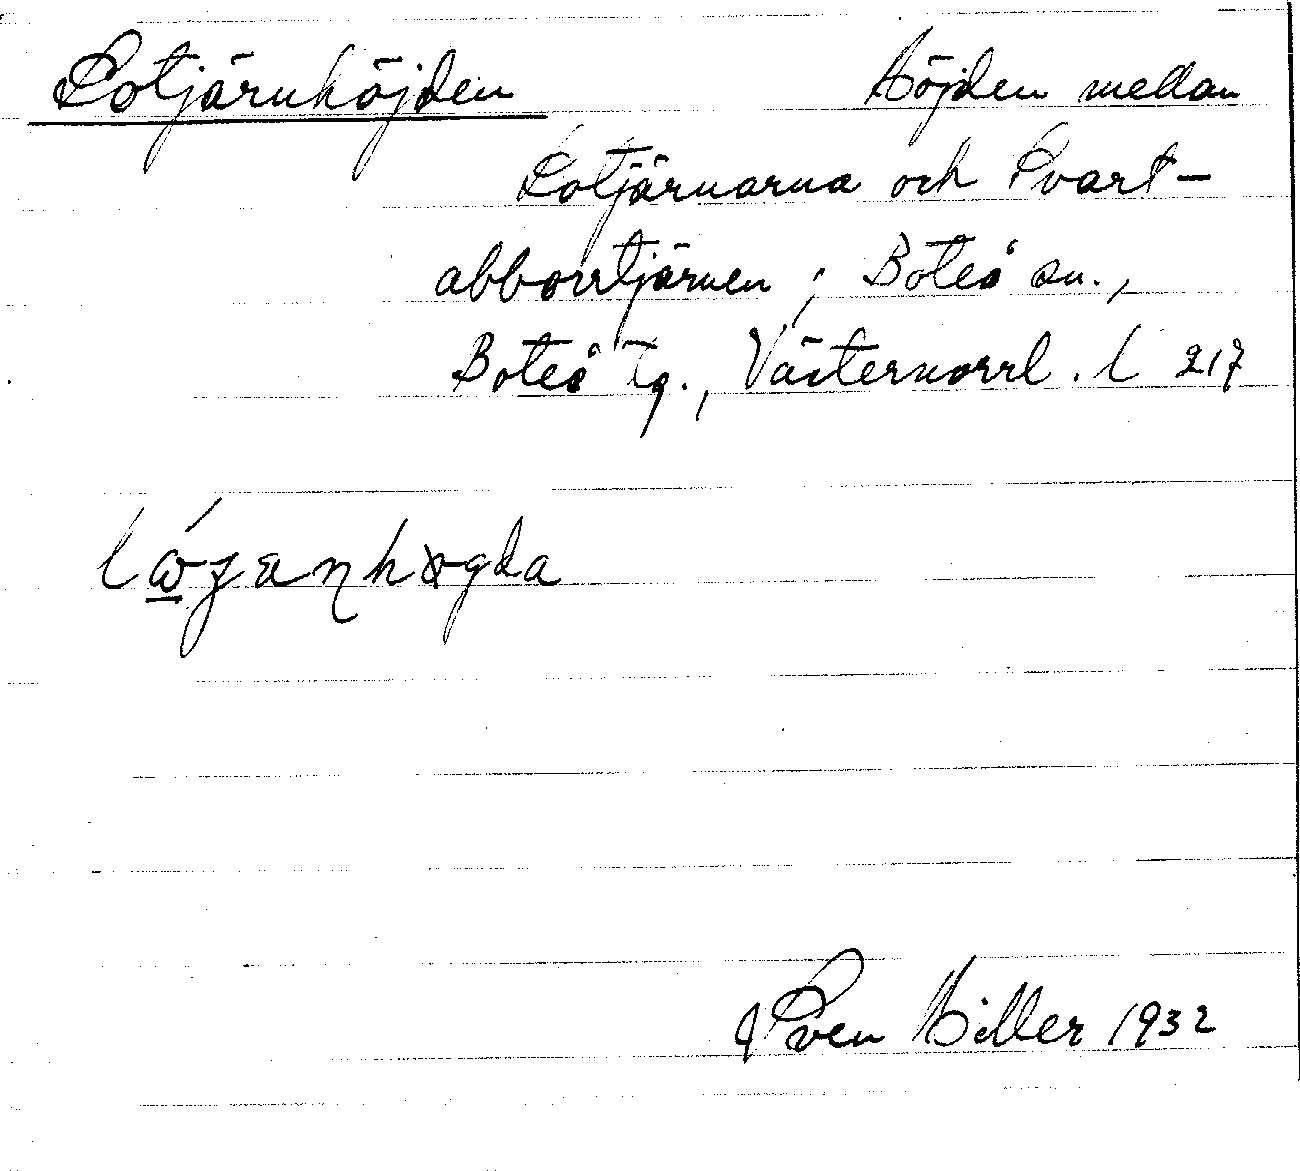 Lotjärnhöjden Höjden mellan
Lotjärnarna och Svart-
abborrtjärnen; Boteå sn.,
Boteå tg., Västernorrl. l 217
Sven Hiller 1932